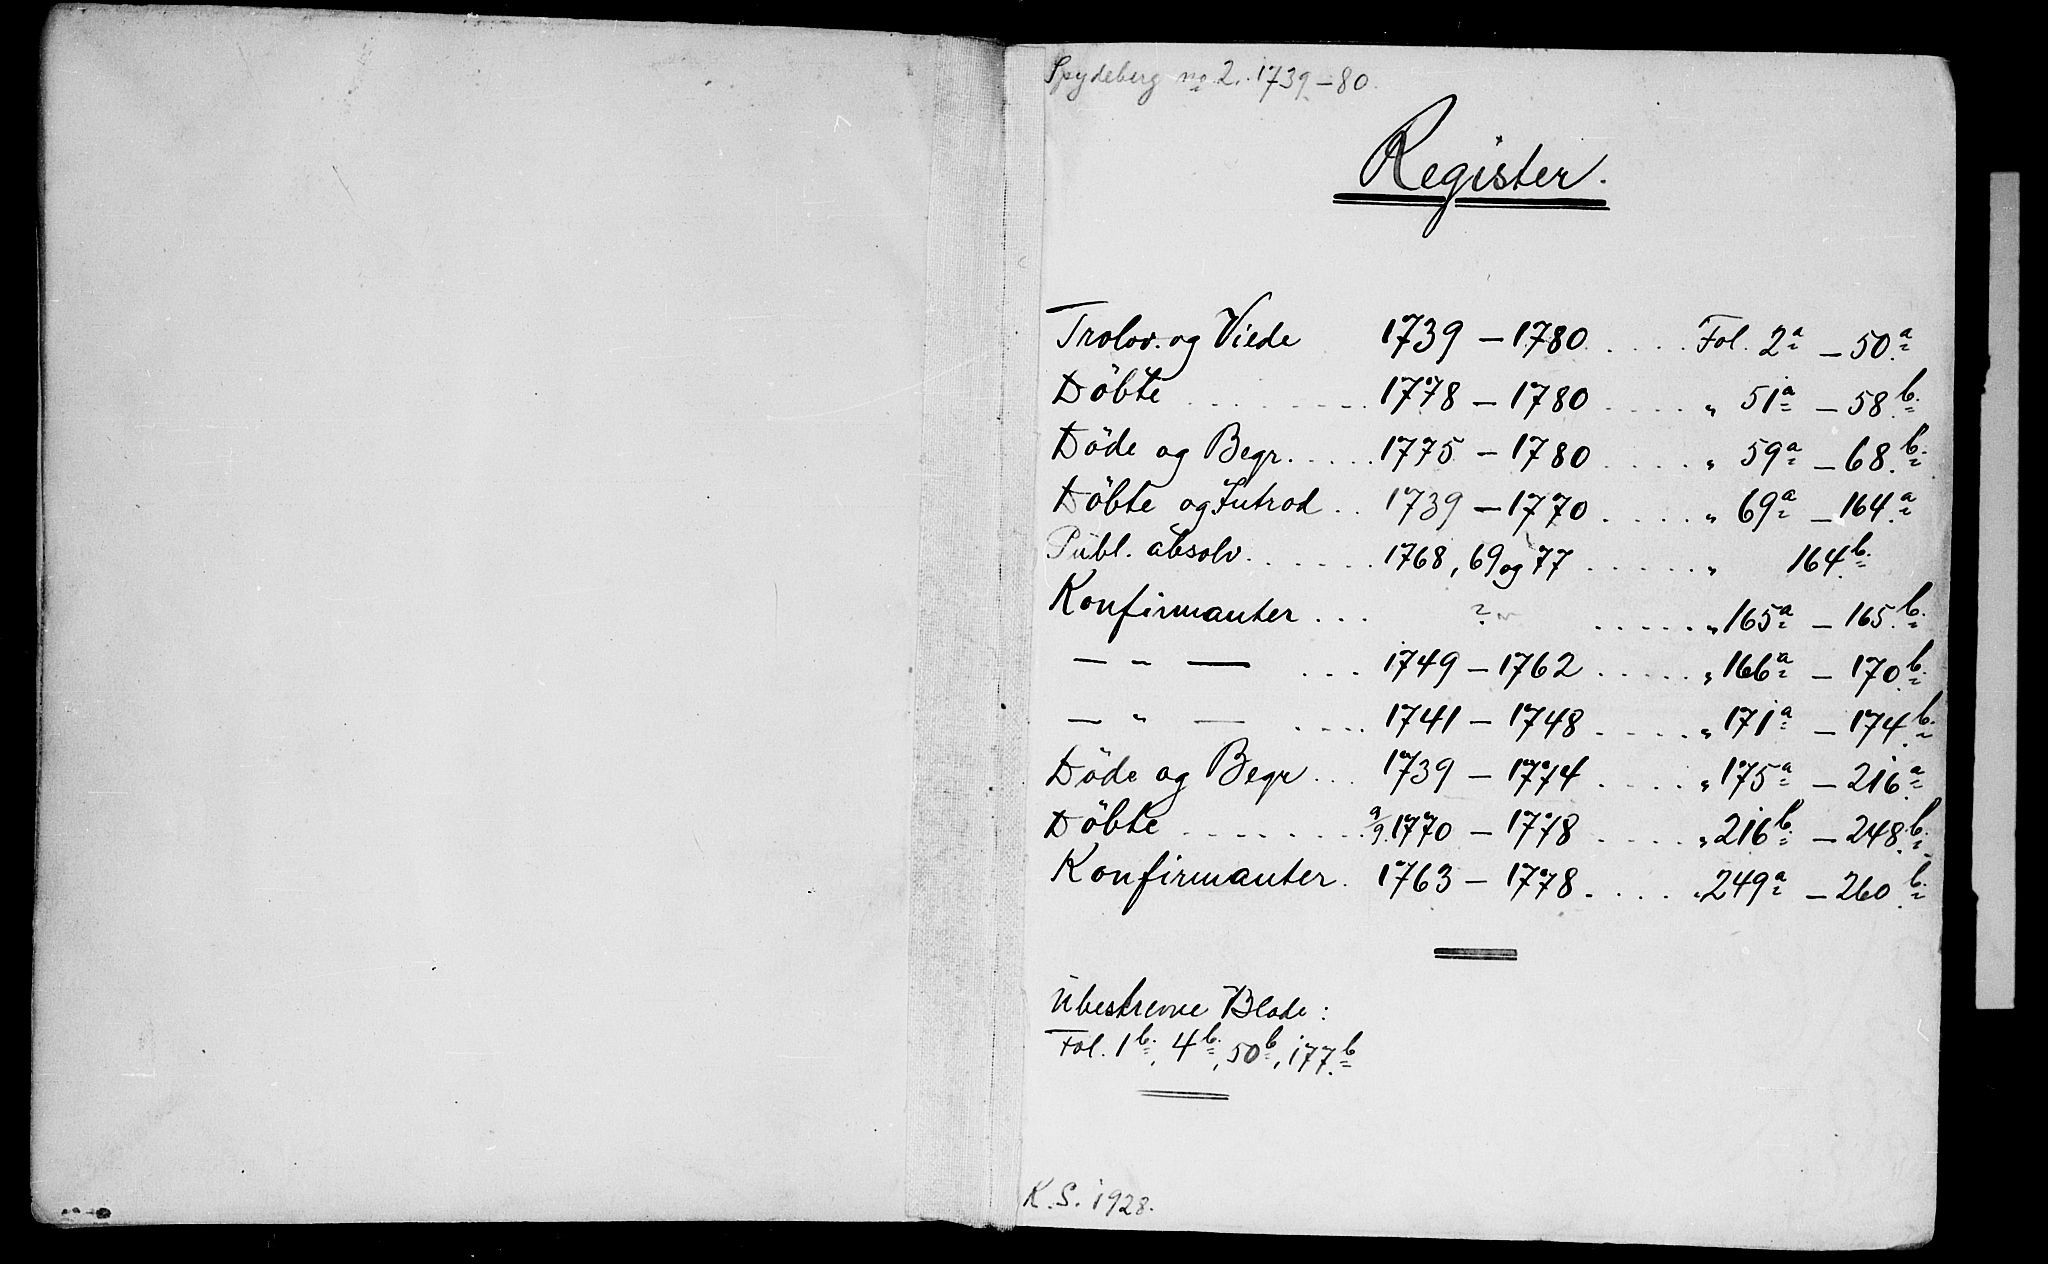 Spydeberg no 2. 1739-80.
Register.
Trolov. og Viede 1739 - 1780 . . . . . Fol. 2a - 50a
Döbte . . . . . . . . 1778 - 1780 . . . . . " 51a - 58b.
Döde og Begr. . . . . . 1775 - 1780 . . . . . " 59a - 68b.
Döbte og Introd . . 1739 - 1770 . . . . . " 69a - 164a
Publ. absolv. . . . . . . 1768, 69 og 77 . . . . . . " 164b.
Konfirmanter . . . ? . . . . . " 165a - 165b.
— " — . . . 1749 - 1762 . . . . . " 166a - 170b.
— " — . . . . 1741 - 1748 . . . . . " 171a - 174b.
Döde og Begr . . . 1739 - 1774 . . . . . " 175a - 216a
Döbte . . . . . . . 9/9. 1770 - 1778 . . . . . " 216b. - 248b.
Konfirmanter . 1763 - 1778 . . . . . 249a - 260b.
Ubeskrevne Blade :
Fol. 1b., 4b., 50b, 177b
K. S. 1928.